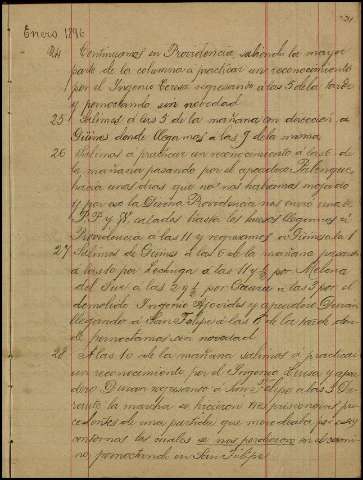 Enero 1896
24 Continuamos en Providencia, saliendo la mayor
parte de la columna a practicar un reconocimiento
por el Ingenio Teresa regresando a las 5 de la tarde
y pernoctando sin novedad
25 Salimos a las 5 de la mañana con direccion a
Güines donde llegamos a las 9 de la misma
26 Salimos a practicar un reconocimiento a las 6 de
la mañana pasando por el apeadero Palenque,
hacia unos dias que no nos habiamos mojado
y por eso la Divina Providencia nos envió una de
P.P y W, calados hasta los huesos llegamos a
Providencia a las 11 y regresamos a Güines a la 1
27 Salimos de Güines a las 6 de la mañana pasando
a las 10 por Lechuga a las 11 y ½ por Melena
del Sur a las 2 y ½ por Guara a las 3 por el
demolido Ingenio y apeadero Duran
llegando a San Felipe a las 6 de la tarde don
de pernoctamos sin novedad
28 A las 10 de la mañana salimos a practicar
un reconocimiento por el Ingenio Luisa y apea
dero Duran regresando a San Felipe a las 5 Du
rante la marcha se hicieron tres prisioneros pro
cedentes de una partida que merodeaba por estos
contornos los cuales se nos perdieron en el cami
no pernoctando en San Felipe